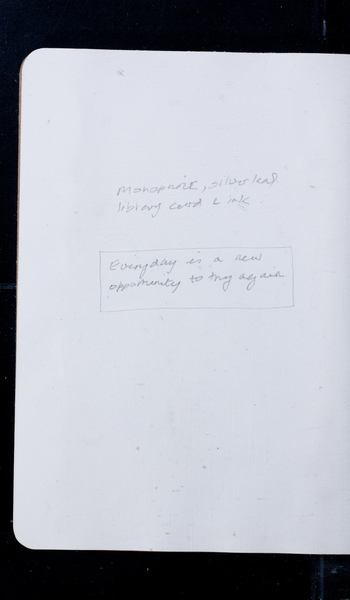 monoprint, silver leaf
library card & ink
Everyday is a new
opportunity to try again